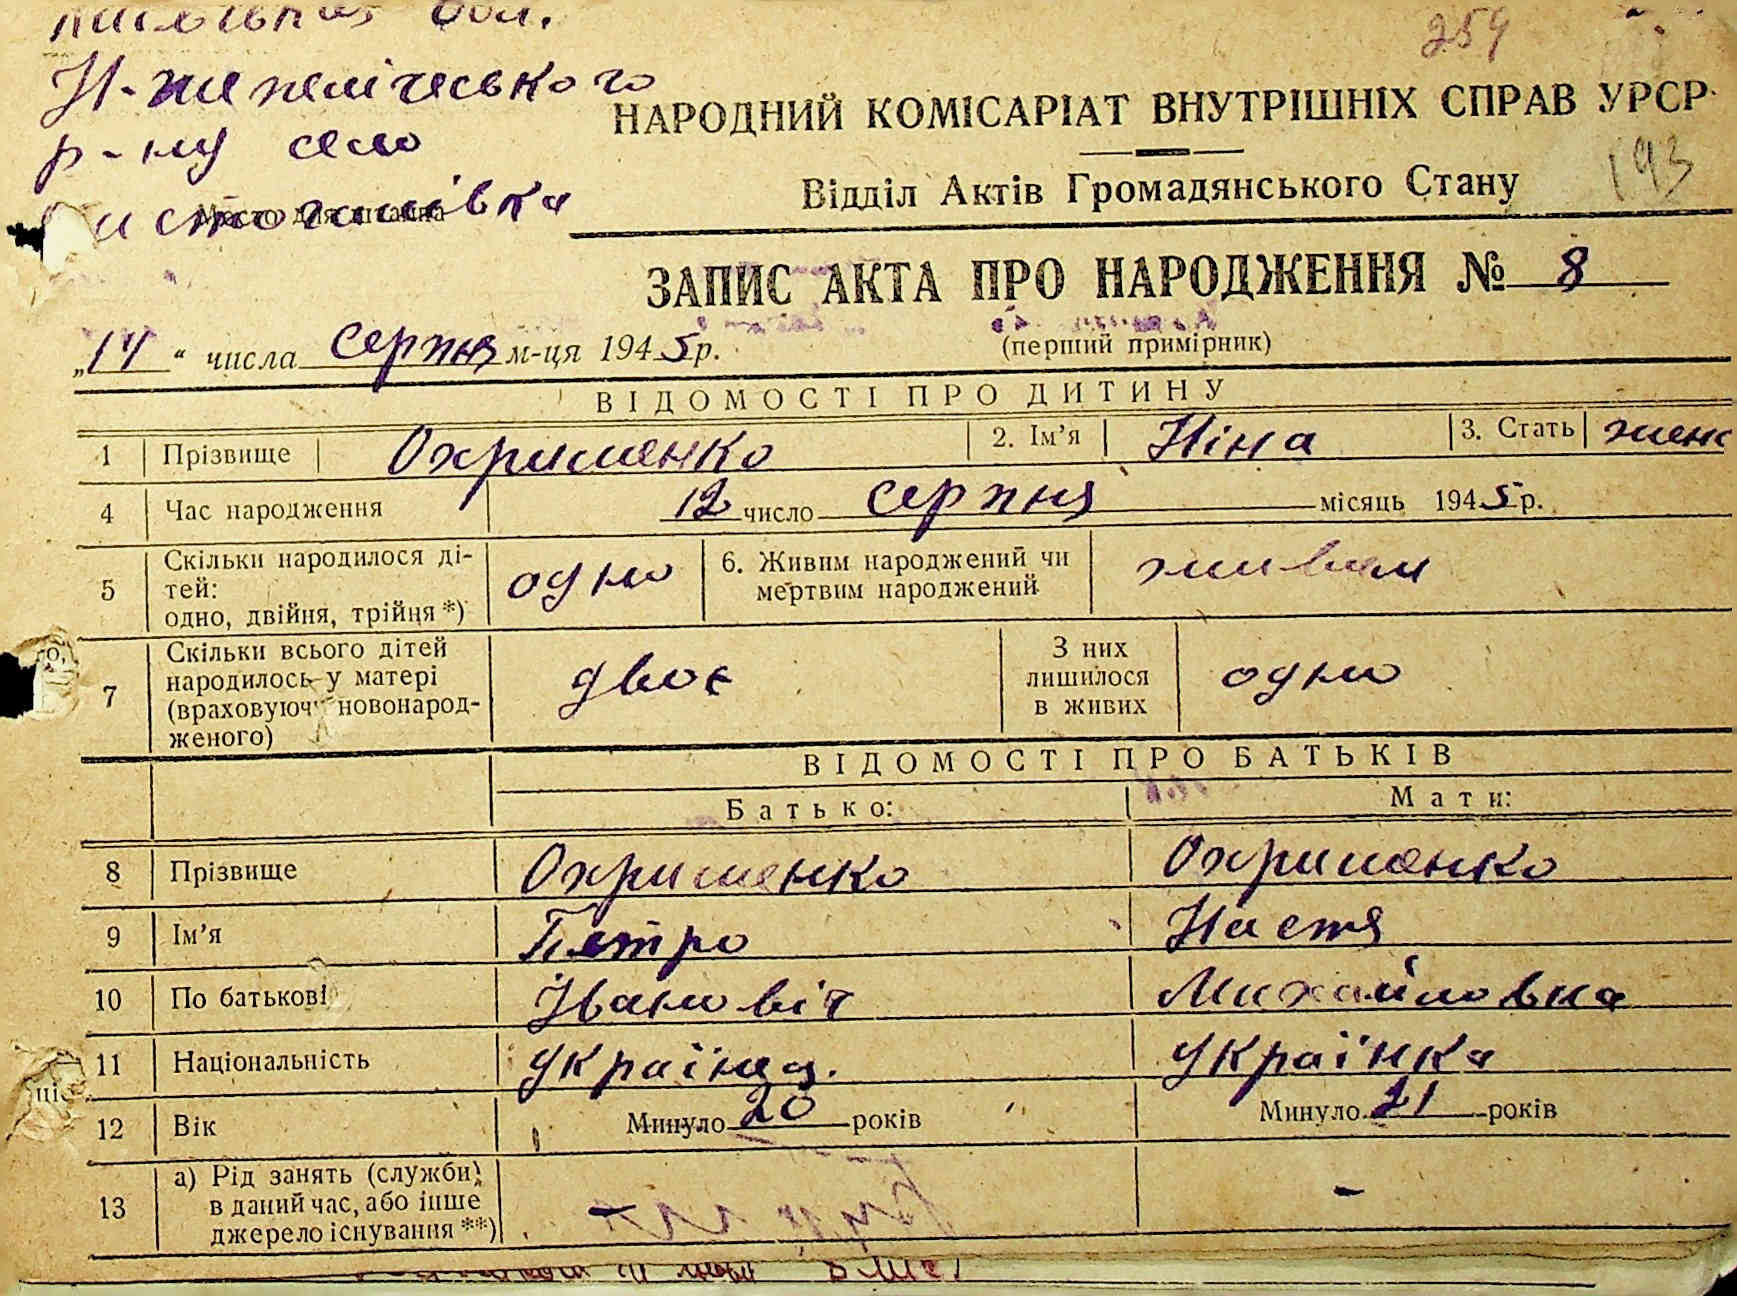 обл.
259
р-ну село
НАРОДНИЙ КОМІСАРІАТ ВНУТРІШНІХ СПРАВ УРСР
193
Відділ Актів Громадянського Стану
ЗАПИС АКТА ПРО НАРОДЖЕННЯ № 8
„14“ числа серпня м-ця 1945 р.
(перший примірник)
ВІДОМОСТІ ПРО ДИТИНУ
1 Прізвище Охрименко 2. Ім'я Ніна 3. Стать жінс
4 Час народження 12 число серпня місяць 1945 р.
5 Скільки народилося ді-
тей:
одно, двійня, трійця *) одно
6. Живим народжений чи
мертвим народжений живим
7 Скільки всього дітей
народилось у матері
(враховуючи новонарод-
женого) двоє
З них
лишилося
в живих одно
ВІДОМОСТІ ПРО БАТЬКІВ
Батько: Мати:
8 Прізвище Охрименко Охрименко
9 Ім'я Петро Настя
10 По батькові Івановіч Михайловна
11 Національність українец. українка
12 Вік Минуло 20 років Минуло 21 років
13 а) Рід занять (служби)
в даний час, або інше
джерело існування **) - -